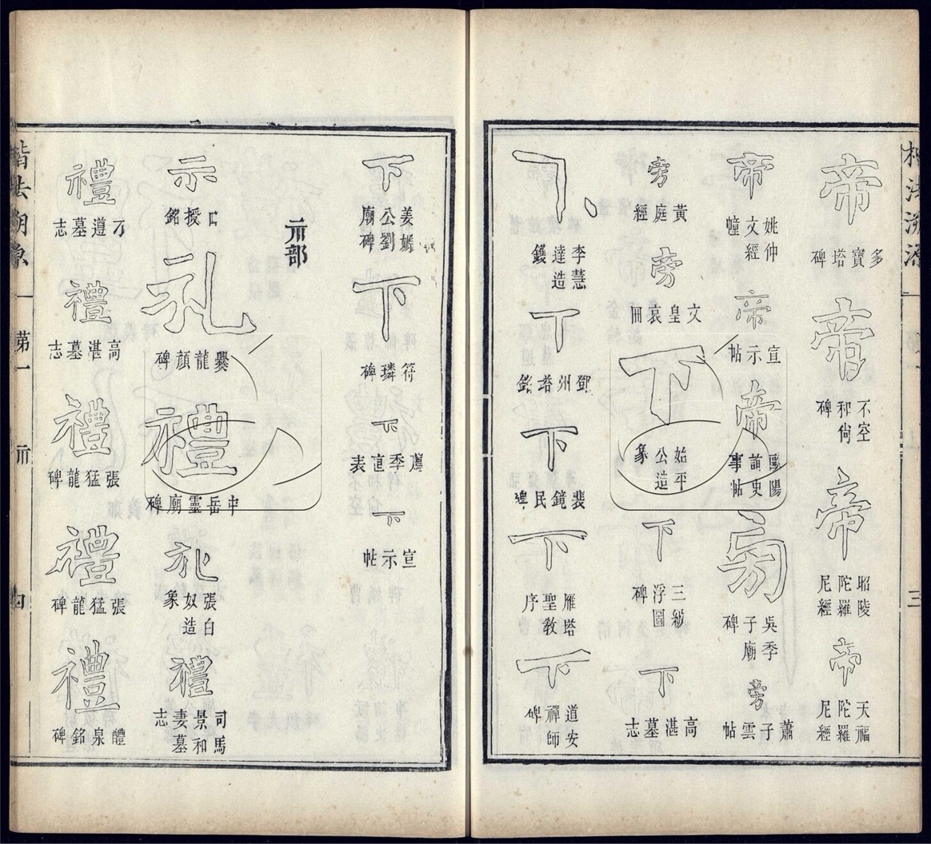 帝 多寶塔碑 帝 不空和尙碑 帝 昭陵陀羅尼經 帝 天福陀羅尼經
帝 姚仲文經幢 帝 宣示帖 帝 歐陽史事帖 㫄 吳季子廟碑 旁 蕭子雲帖
旁 黃庭經 旁 文皇哀冊 下 始平公造象 下 三級浮圖碑 下 高湛墓志
下 李慧達造 下 鄧州塔銘 下 裴鏡民碑 下 雁塔聖教序 下 道安禪師碑
下 姜嫄公劉廟碑 下 符璘碑 下 薦季直表 下 宣示帖
示部
示 授銘 礼 爨龍顏碑 禮 中岳靈廟碑 礼 張白奴造象 禮 司馬景和妻墓志
禮 刁遵墓志 禮 高湛墓志 禮 張猛龍碑 禮 張猛龍碑 禮 醴泉銘碑
楷法溯源 弟一 示 四